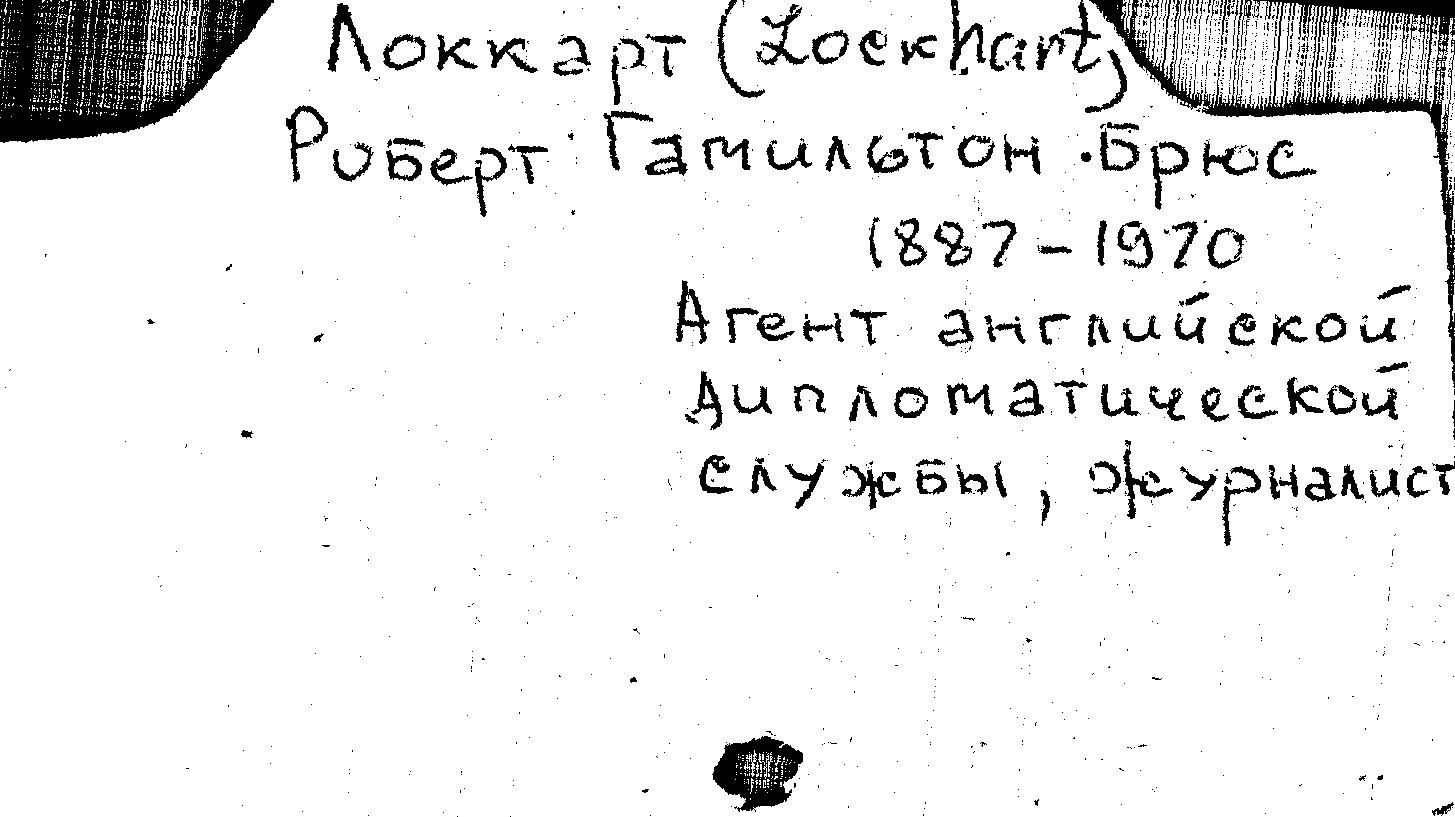 Локкарт (Lockhart)
Роберт Гамильтон Брюс
1887-1970
Агент английской
дипломатической
службы, журналист